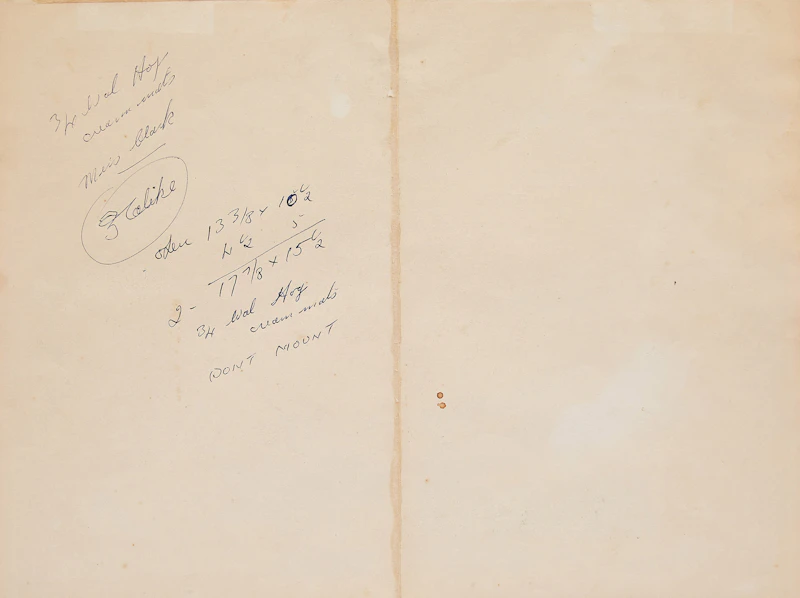 3/4 Wal Hog
cream mats
Miss Clark
3 alike
13 3/8 x 10 1/2
4 1/2 5
2 - 17 7/8 x 15 1/2
3/4 Wal Hog
cream mats
DONT MOUNT